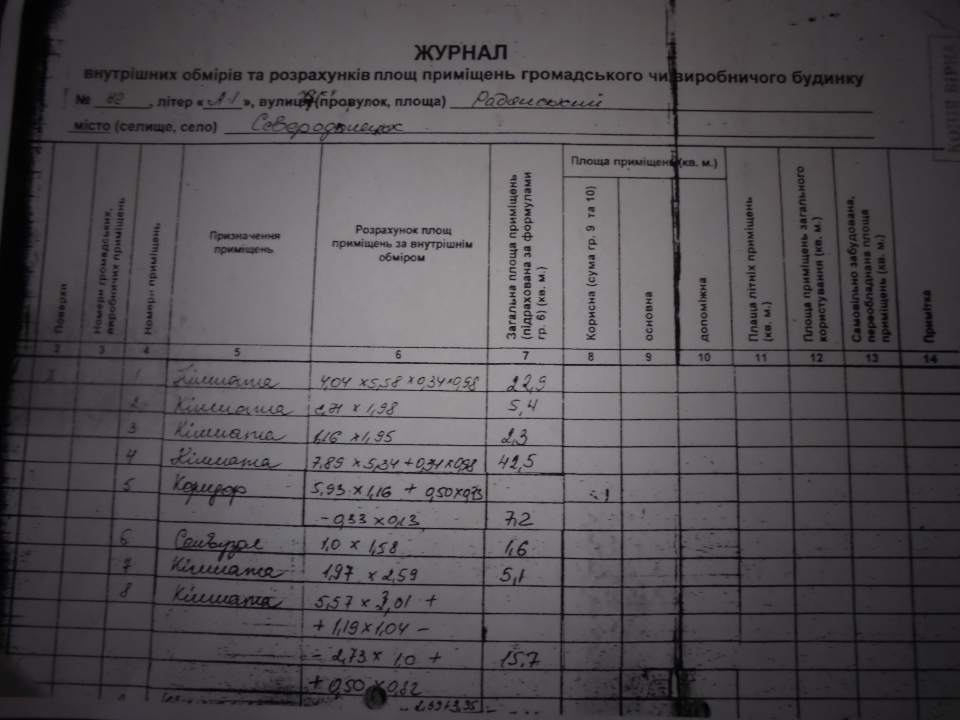 ЖУРНАЛ
внутрішних обмірів та розрахунків площ приміщень громадського чи виробничого будинку
№ , літер « А-1 », вулиця (провулок, площа) Радянський
місто (селище, село) Сєвєродонецьк
КОПІЯ ВІРНА
Поверхи
Номери громадських, виробничих приміщень
Номери приміщень
Призначення приміщень
Розрахунок площ приміщень за внутрішнім обміром
Загальна площа приміщень (підрахована за формулами гр. 6) (кв. м.)
Площа приміщень (кв. м.)
Корисна (сума гр. 9 та 10)
основна
допоміжна
Площа літніх приміщень (кв. м.)
Площа приміщень загального користування (кв. м.)
Самовільно забудована, переобладнана площа приміщень (кв. м.)
Примітка
2 3 4 5 6 7 8 9 10 11 12 13 14
1 Кімната 4,04 × 5,58 + 0,34 × 0,98 22,9
2 Кімната 2,71 × 1,98 5,4
3 Кімната 1,16 × 1,95 2,3
4 Кімната 7.89 × 5,34 + 0,34 × 0,98 42,5
5 Коридор 5,93 × 1,16 + 0,50 × 0,73
- 0,33 × 0,13 7,2
6 Санвузол 1,0 × 1,58 1,6
7 Кімната 1,97 × 2,59 5,1
8 Кімната 5,57 × 3,01 +
+ 1,19 × 1,04 -
- 2,73 × 1,0 + 15,7
+ 0,50 × 0,82